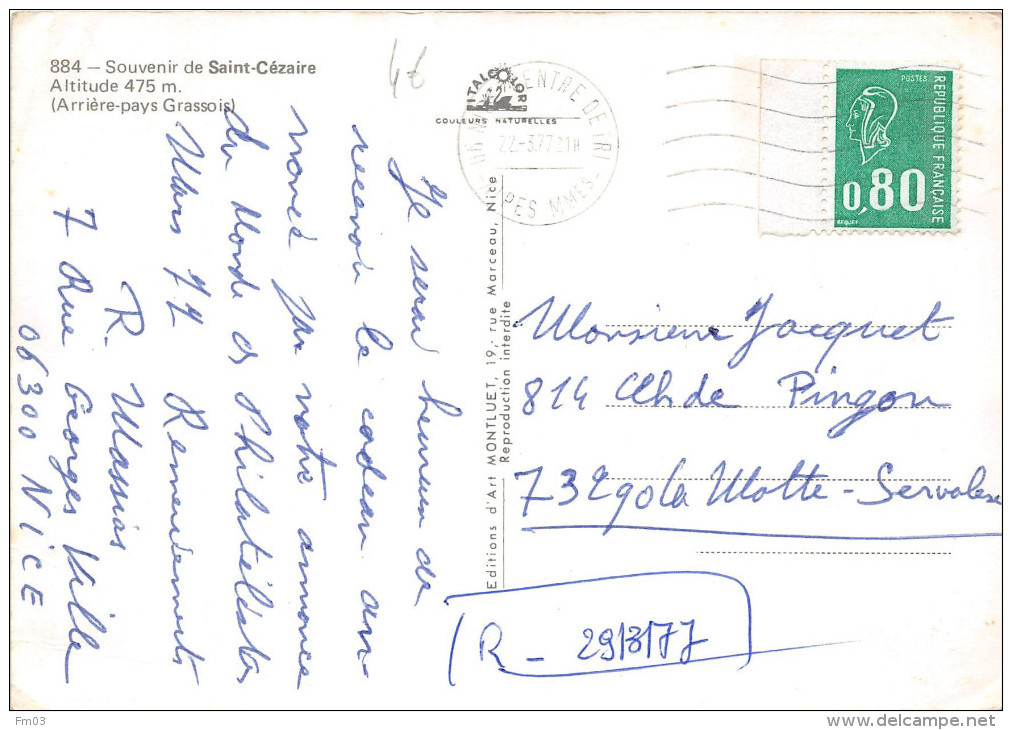 884 — Souvenir de Saint-Cézaire
Altitude 475 m.
(Arrière-pays Grassois)
46
ITALCOLOR
COULEURS NATURELLES
CENTRE DE TRI
22-3.77 21H
POSTES
REPUBLIQUE FRANÇAISE
0,80
BEQUET
Je serai heureux de
recevoir le cadeau an-
noncé par votre annonce
du Monde des Philatélistes
Mars 77 Remerciements
R. Massias
7 Rue Georges Ville
06300 NICE
Editions d'Art MONTLUET, 19, rue Marceau, Nice
Reproduction interdite
Monsieur Jacquet
814 Ch de Pingon
73290 La Motte-Servolex
R - 29/3/77
Fm03
delcampe.net